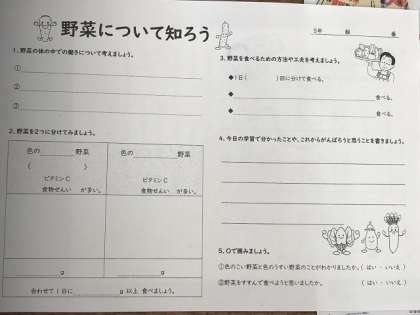 野菜について知ろう
5年 組 番
1、野菜の体の中での働きについて考えましょう。
①
②
③
2、野菜を2つに分けてみましょう。
色の 野菜
( )
ビタミンC
食物せんい が多い。
色の 野菜
ビタミンC
食物せんい が多い。
g
g
合わせて1日に g 以上 食べましょう。
3、野菜を食べるための方法や工夫を考えましょう。
◆1日( )回に分けて食べる。
◆ 食べる。
◆ 食べる。
4、今日の学習で分かったことや、これからがんばろうと思うことを書きましょう。
5、○で囲みましょう。
①色のこい野菜と色のうすい野菜のことがわかりましたか。( はい ・ いいえ )
②野菜をすすんで食べようと思いましたか。( はい ・ いいえ )